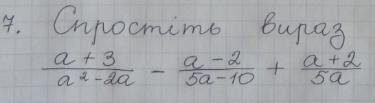 7. Спростіть вираз
(a + 3)/(a² - 2a) - (a - 2)/(5a - 10) + (a + 2)/(5a)